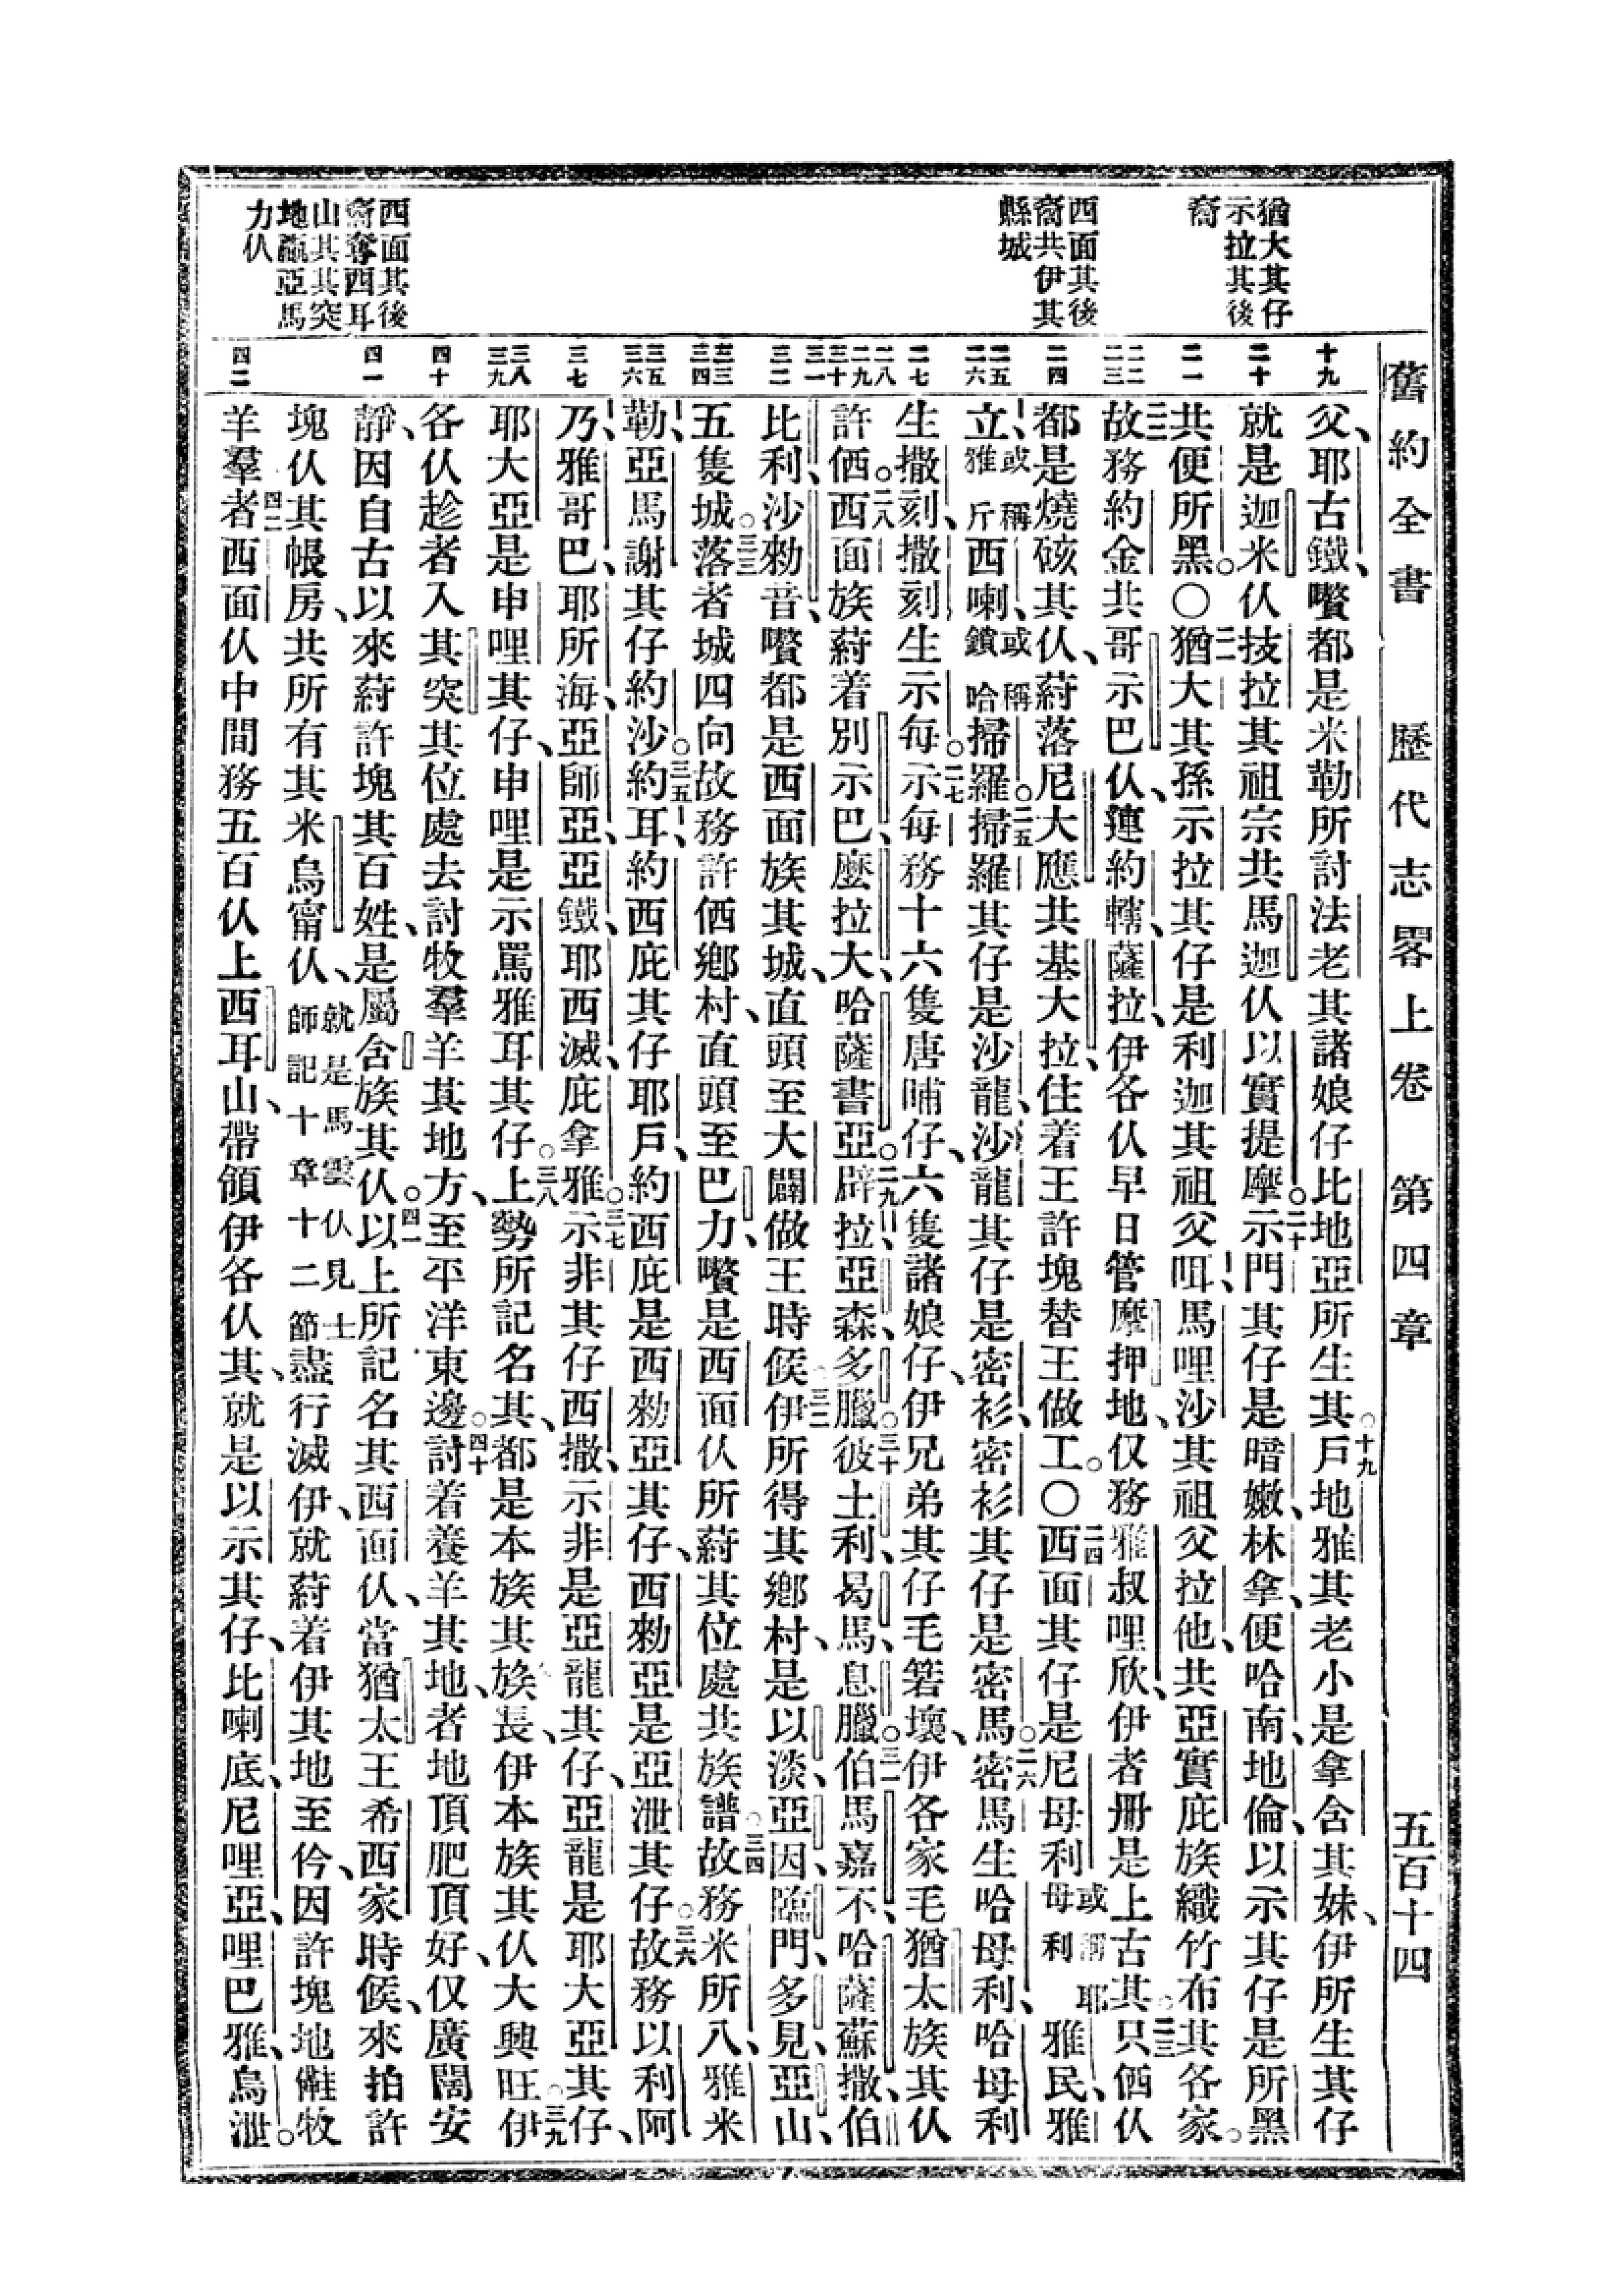 舊約全書 歷代志畧上卷 第四章 五百十四
猶大其仔
示拉其後
裔
西面其後
裔共伊其
縣城
西面其後
裔奪西耳
山其其突
地瀛亞馬
力仈
十九
二十
二一
二二
二三
二四
二五
二六
二七
二八
二九
三十
三一
三二
三三
三四
三五
三六
三七
三八
三九
四十
四一
四二
父、耶古鐵、嚽都是米勒所討法老其諸娘仔比地亞所生其○十九戶地雅其老小是拿含其妹、伊所生其仔
就是迦米仈技拉其祖宗共馬迦仈以實提摩○二十示門其仔是暗嫩、林拿、便哈南、地倫、以示其仔是所黑
共便所黑○二一猶大其孫示拉其仔是利迦其祖父咡、馬哩沙其祖父拉他、共亞實庇族織竹布其各家○
二二故務約金共哥示巴仈、蓮約轄、薩拉、伊各仈早日管摩押地、仅務雅叔哩欣、伊者冊是上古其○二三只伵仈
都是燒硋其仈、葤落尼大應共基大拉住着王許塊替王做工○○二四西面其仔是尼母利或稱耶母利雅民、雅
立、或稱雅斤西喇、或稱鎖哈掃羅○二五掃羅其仔是沙龍、沙龍其仔是密衫、密衫其仔是密馬○二六密馬生哈母利、哈母利
生撒刻、撒刻生示每○二七示每務十六隻唐晡仔、六隻諸娘仔、伊兄弟其仔毛箬壞、伊各家毛猶太族其仈
許伵○二八西面族葤着別示巴、麼拉大、哈薩書亞○二九辟拉、亞森、多臘○三十彼土利、曷馬、息臘○三一伯馬嘉不、哈薩蘇撒、伯
比利、沙勑音、嚽都是西面族其城、直頭至大闢做王時候○三二伊所得其鄉村、是以淡、亞因、臨門、多見、亞山、
五隻城○三三落者城四向故務許伵鄉村、直頭至巴力、嚽是西面仈所葤其位處共族譜○三四故務米所八、雅米
勒、亞馬謝其仔約沙○三五約耳、約西庇其仔耶戶、約西庇是西勑亞其仔、西勑亞是亞泄其仔○三六故務以利阿
乃、雅哥巴、耶所海、亞師亞、亞鐵、耶西滅、庇拿雅○三七示非其仔西撒、示非是亞龍其仔、亞龍是耶大亞其仔、
耶大亞是申哩其仔、申哩是示罵雅耳其仔○三八上勢所記名其、都是本族其族長、伊本族其仈大興旺○三九伊
各仈趁者入其突其位處去討牧羣羊其地方、至平洋東邊○四十討着養羊其地、者地頂肥頂好、仅廣闊安
靜、因自古以來葤許塊其百姓、是屬含族其仈○四一以上所記名其西面仈、當猶太王希西家時候、來拍許
塊仈其帳房、共所有其米烏甯仈、就是馬雲仈見士師記十章十二節盡行滅伊、就葤着伊其地至仱、因許塊地雝牧
羊羣○四二者西面仈中間務五百仈上西耳山、帶領伊各仈其、就是以示其仔、比喇底、尼哩亞、哩巴雅、烏泄○